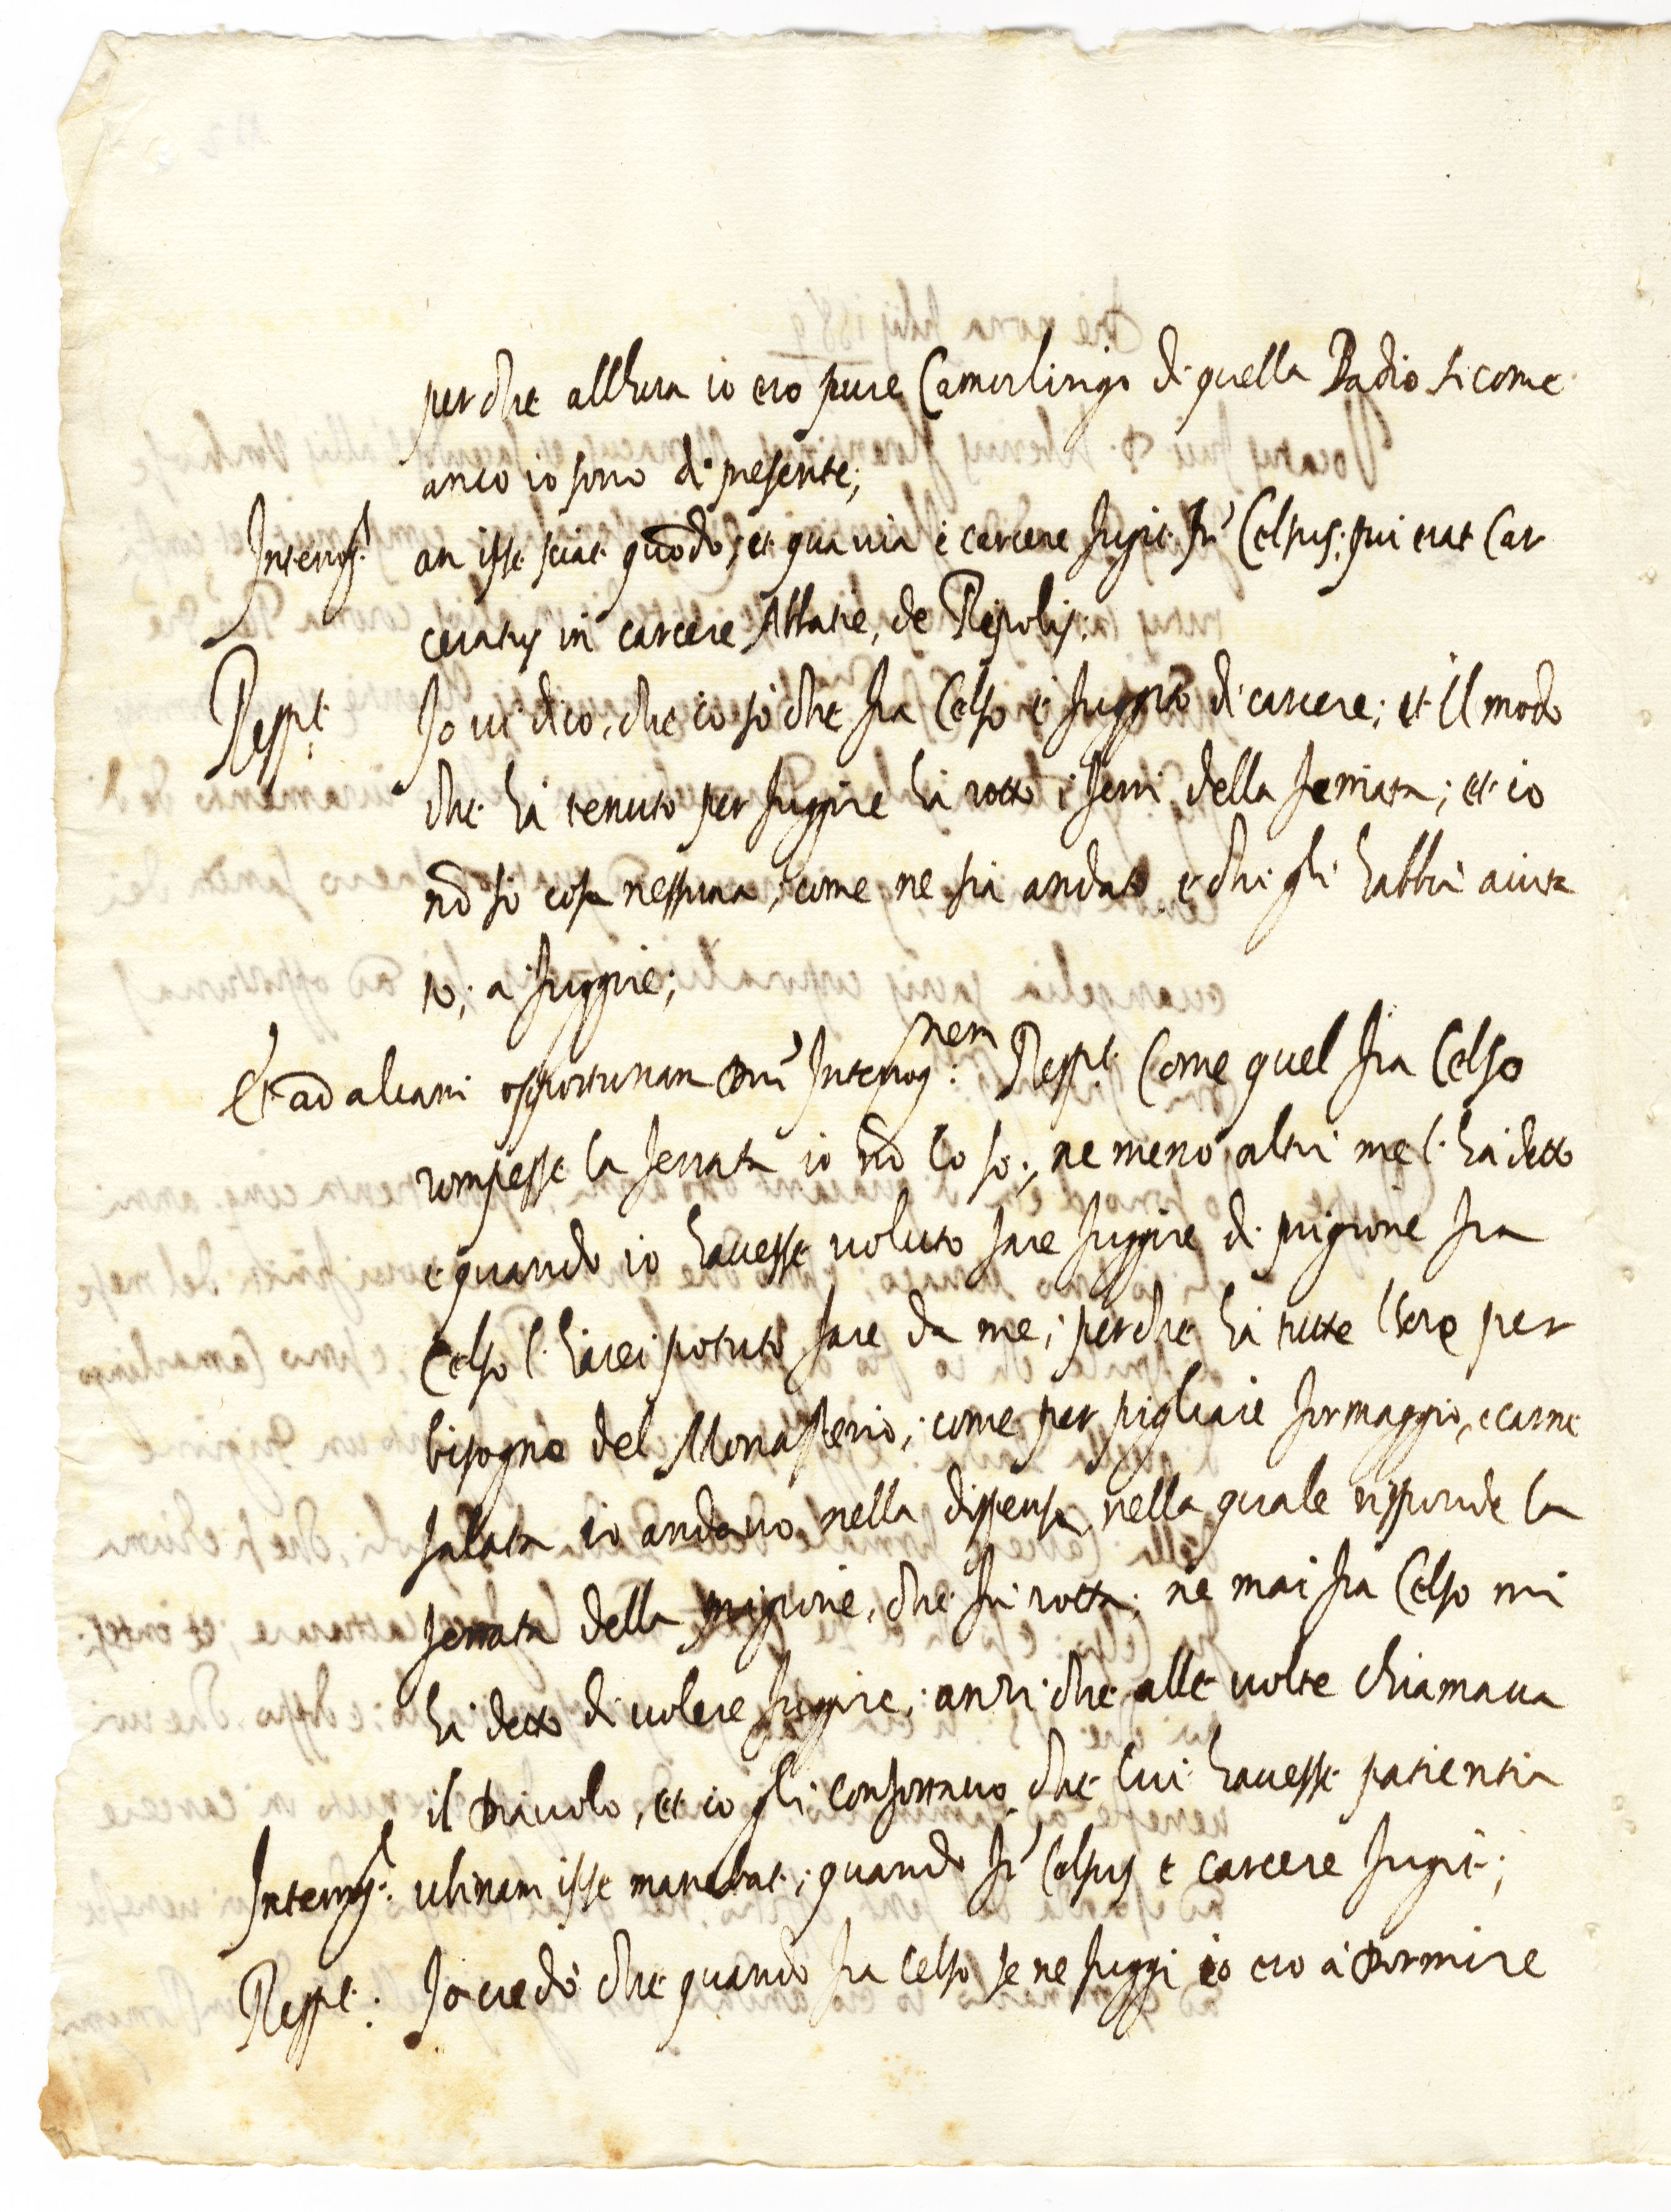 perche allhora io ero pure Camerlingo di quella Badia sicome
anco io sono di presente;
Interrog.t an ipse sciat quōdo, et qua via è carcere fugit fr' Celsus; qui erat Car
ceratus in carcere Abbatie, de Ripolis:
Resp.t Io vi dico, che io sò che fra Celso è fuggito di carcere; et il modo
che hà tenuto per fuggire hà rotto i ferri della ferriata; et io
nō sò cosa nessuna, come ne sia andato, e chi gli habbia aiuta
to; a fuggire;
Et ad aliam opportunam Dni' Interrog:nem Resp.t Come quel fra Celso
rompesse la ferrata io nō lo so; ne meno altri me l' hà detto
e quando io havesse voluto fare fuggire di prigione fra
Celso l' harei potuto fare da me; perche hà tutte l'ore per
bisogno del Monasterio; come per pigliare formaggio, e carne
salata io andavo nella dispensa, nella quale risponde la
ferrata della prigione, che fù rotta; ne mai fra Celso mi
hà detto di volere fuggire; anzi che alle volte chiamava
il Diavolo, et io gli confortavo che lui havesse patientia
Interrog.t: ubinam ipse manebat; quando fr' Celsus e carcere fugit;
Resp.t: Io credo che quando fra Celso se ne fuggi io ero à Dormire